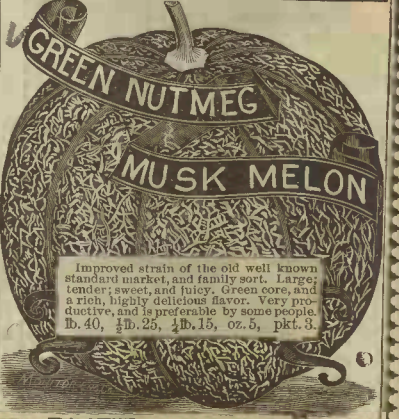 GREEN NUTMEG
MUSK MELON
Improved strain of the old well known
standard market, and family sort. Large;
tender; sweet, and juicy. Green core, and
a rich, highly delicious flavor. Very pro-
ductive, and is preferable by some people.
lb. 40, ½lb. 25, ¼lb. 15, oz. 5, pkt. 3.